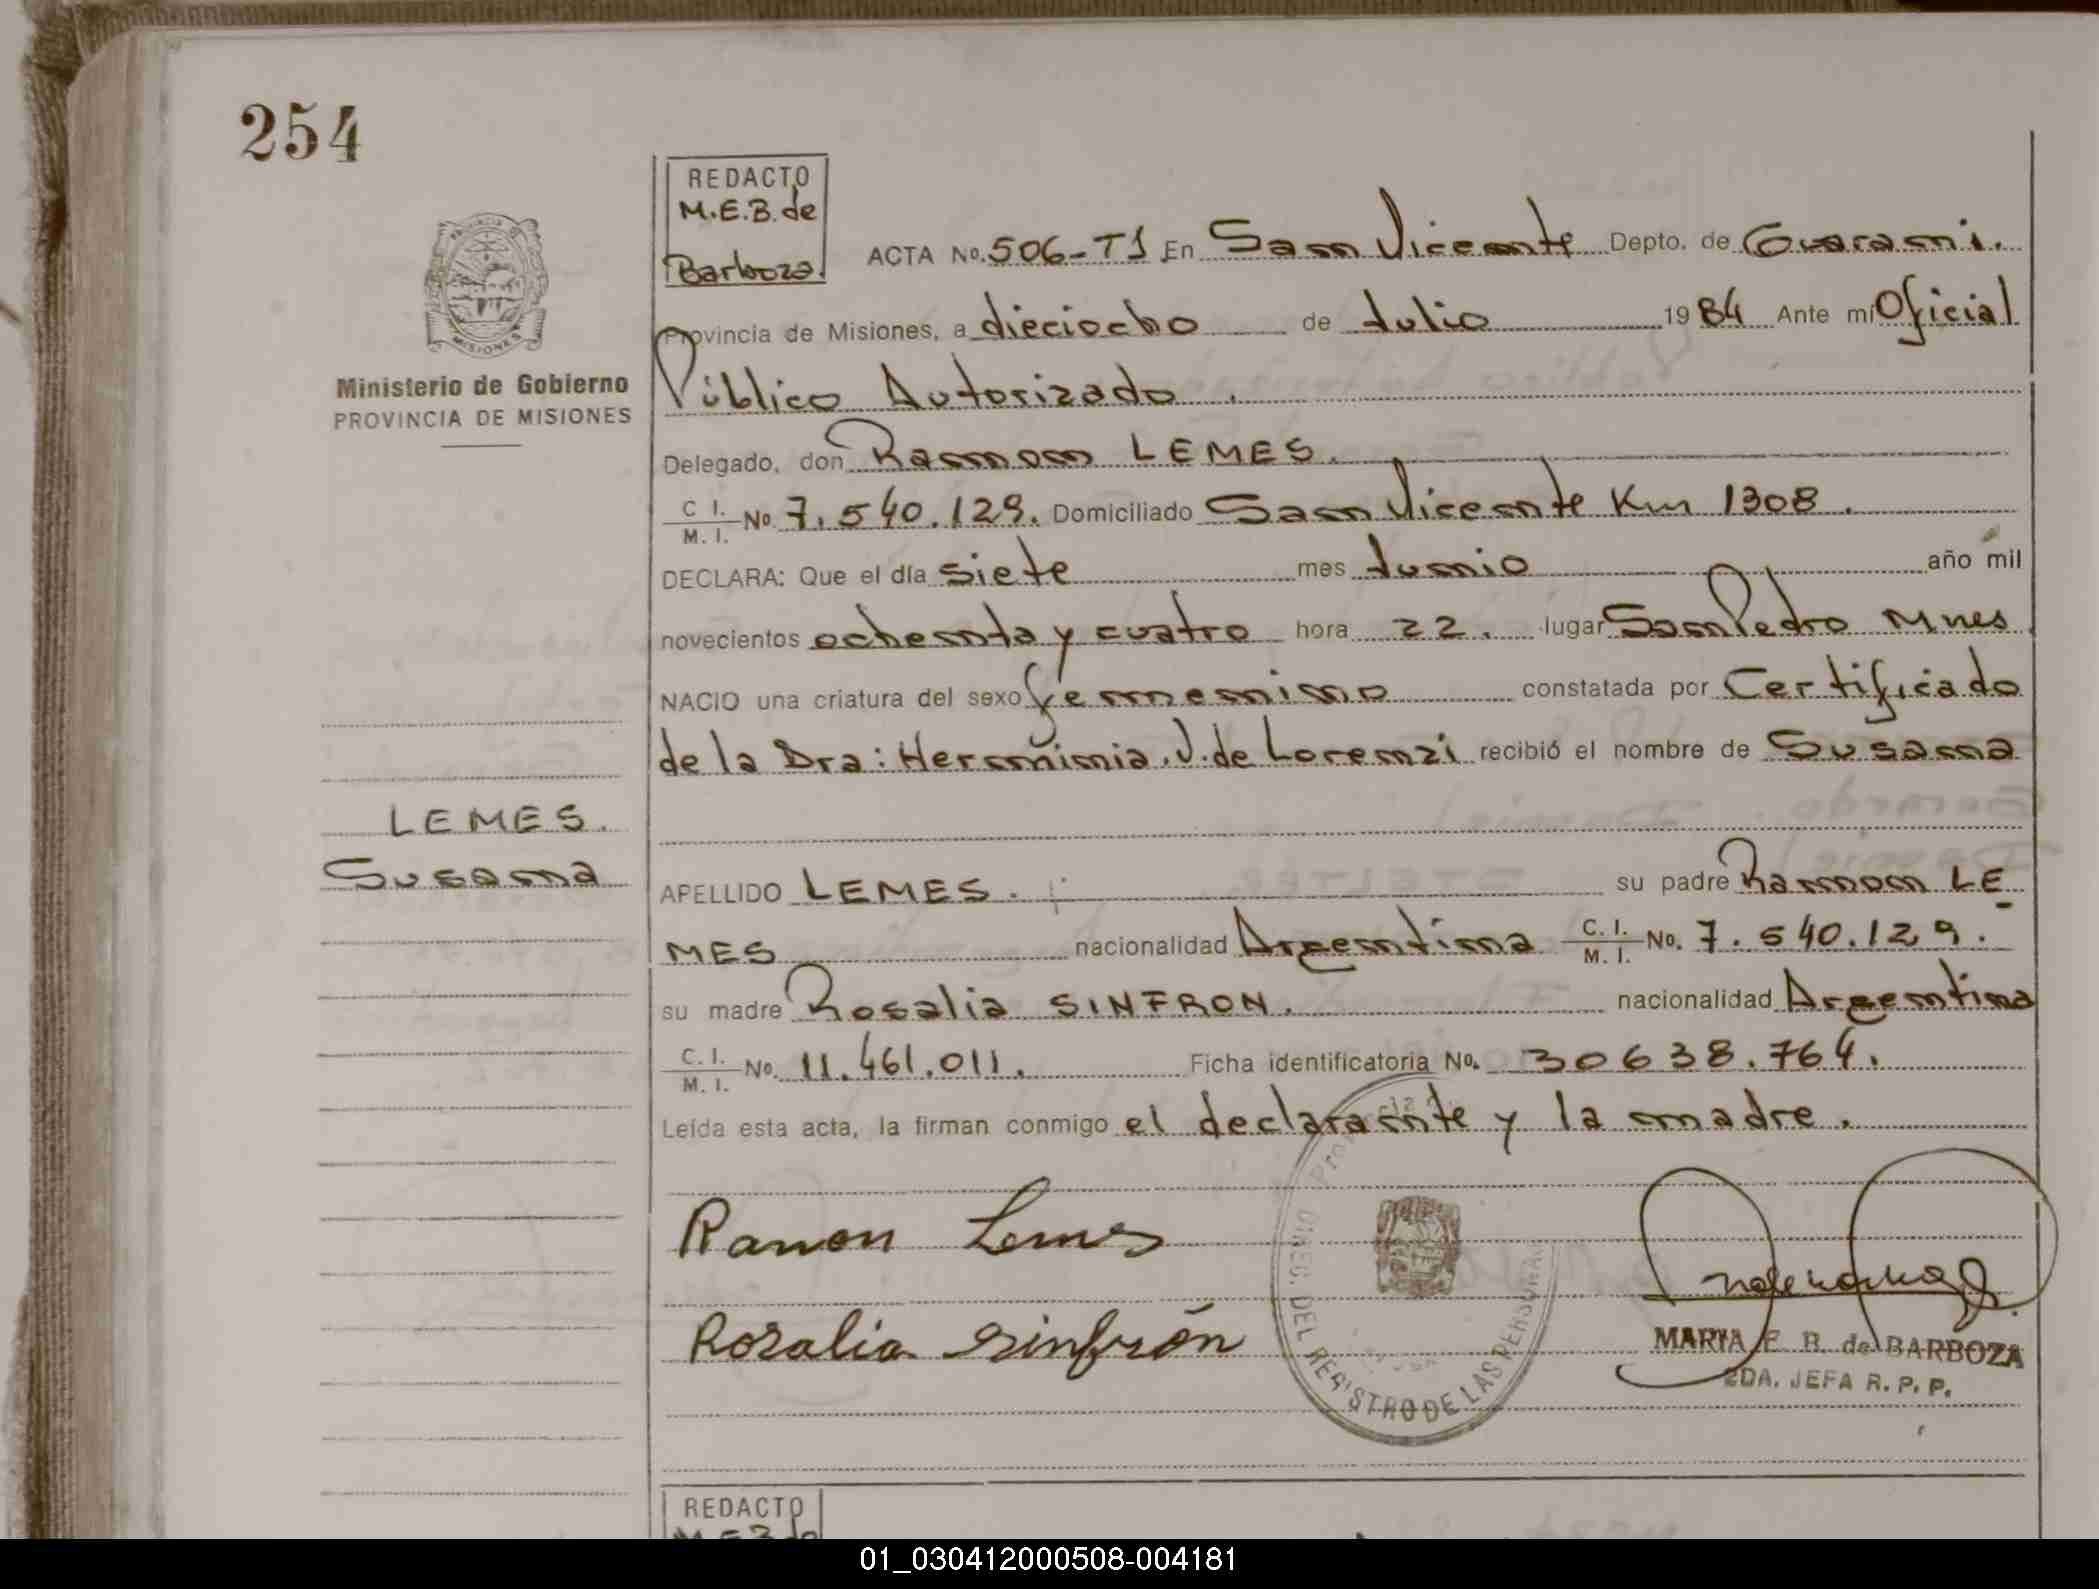 254
REDACTO
M.E.B. de
Barboza.
ACTA No. 506-T1 En San Vicente Depto. de Guarani.
Provincia de Misiones, a dieciocho de Julio 1984 Ante mí Oficial
Público Autorizado.
Delegado, don Ramon LEMES.
C I. / M. I. No. 7.540.129. Domiciliado San Vicente Km 1308.
DECLARA: Que el día siete mes Junio año mil
novecientos ochenta y cuatro hora 22. lugar San Pedro Mnes
NACIO una criatura del sexo femenino constatada por Certificado
de la Dra: Herminia. J. de Lorenzi recibió el nombre de Susana
APELLIDO LEMES. su padre Ramon LE
MES nacionalidad Argentina C. I. / M. I. No. 7.540.129.
su madre Rosalia SINFRON. nacionalidad Argentina
C. I. / M. I. No. 11.461.011. Ficha identificatoria No. 30638.764.
Leída esta acta, la firman conmigo el declarante y la madre.
Ramon Lemes
Rosalia Sinfrón
MARIA E. B. de BARBOZA
2DA. JEFA R. P. P.
DIREC. DEL REGISTRO DE LAS PERSONAS
PROVINCIA DE
MISIONES
Ministerio de Gobierno
PROVINCIA DE MISIONES
LEMES.
Susana
REDACTO
M.E.B de
01_030412000508-004181